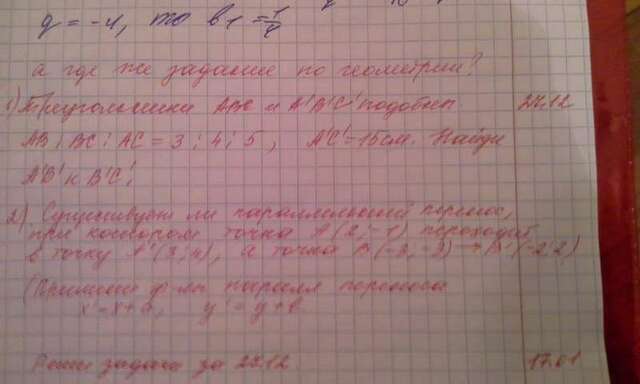 q = -4, то b1 = 1/4
а где же задание по геометрии?
1) Треугольники ABC и A'B'C' подобны 27.12
AB : BC : AC = 3 : 4 : 5, A'C' = 15 см. Найди
A'B' и B'C'.
2) Существует ли параллельный перенос,
при котором точка A (2; -1) переходит
в точку A' (3; 4), а точка B (-3; -3) → B' (-2; 2)
(Примени ф-лы паралл переноса
x' = x + a, y' = y + b
Реши задачи за 27.12 17.01